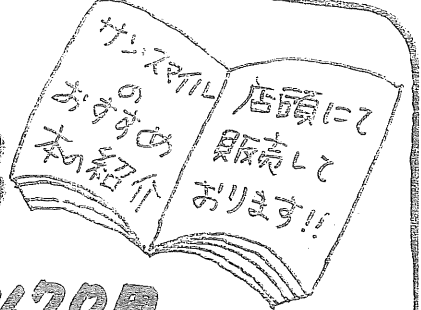 サンスマイル
の
おすすめ
本の紹介
店頭にて
販売して
おります!!